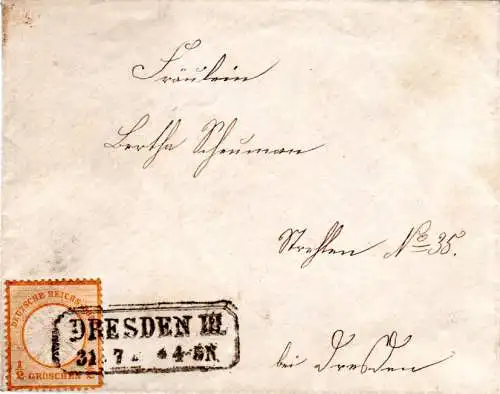 Fräulein
Bertha Scheuman
Strehlen No 35.
bei Dresden
DEUTSCHE REICHS
1/2 GROSCHEN
DRESDEN III.
31 7 4-5N